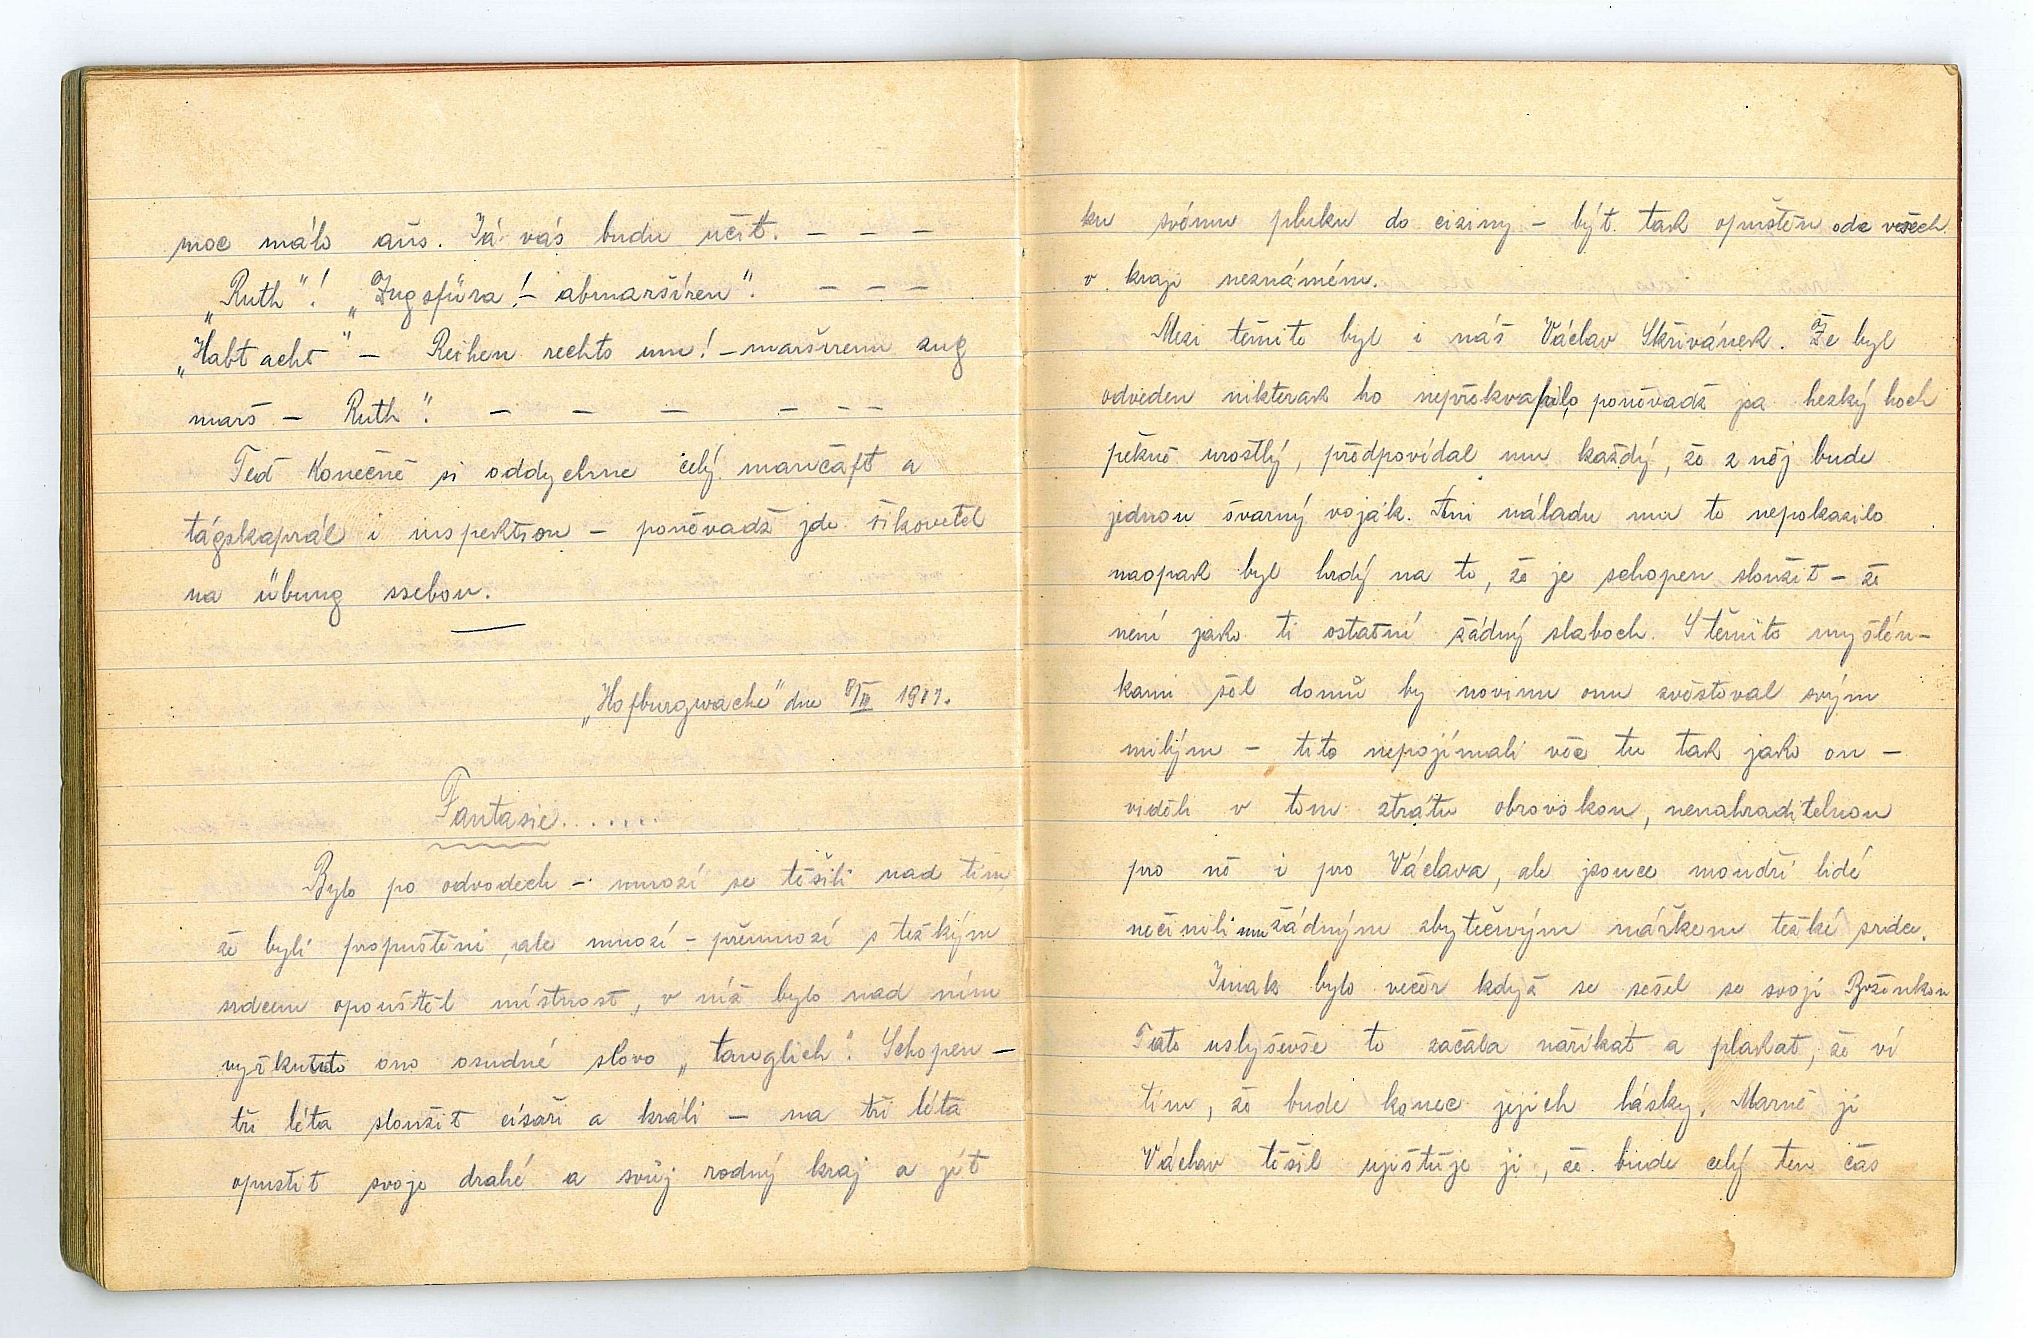 moc málo aus. Já vás budu učit. – – –
„Ruth"! „Zugsfüra! – abmaršíren". – – –
„Habt acht" – Reihen rechts um! – maršírenn zug
marš – Ruth". – – – – – –
Teď konečně si oddychne celý mančaft a
tágskaprál i inspektion – poněvadž jde šikovatel
na übung ssebou.
„Hofburgwache" dne 8/III 1911.
Fantasie......
Bylo po odvodech – mnozí se těšili nad tím,
že byli propuštěni, ale mnozí – přemnozí s težkým
srdcem opouštěl místnost, v níž bylo nad ním
vyřknuto ono osudné slovo „tauglich". Schopen –
tři léta sloužit císaři a králi – na tři léta
opustit svoje drahé a svůj rodný kraj a jét
ku svému pluku do ciziny – být tak opuštěn ode všech
v kraji neznámém.
Mezi těmito byl i náš Václav Skřivánek. Že byl
odveden nikterak ho nepřekvapilo poněvadž jsa hezký hoch
pěkně urostlý, předpovídal mu každý, že z něj bude
jednou švarný voják. Ani náladu mu to nepokazilo
naopak byl hrdý na to, že je schopen sloužit – že
není jako ti ostatní žádný slaboch. S těmito myšlén-
kami šel domů by novinu onu zvěstoval svým
milým – tito nepojímali věc tu tak jako on –
viděli v tom ztrátu obrovskou, nenahraditelnou
pro ně i pro Václava, ale jsouce moudří lidé
nečinili mu žádným zbytečným nářkem težké srdce.
Jinak bylo večér když se sešel se svojí Boženkou
Tato uslyševše to začala naříkat a plakat, že ví
tím, že bude konec jejich lásky. Marně ji
Václav těšil ujištuje ji, že bude celý ten čas